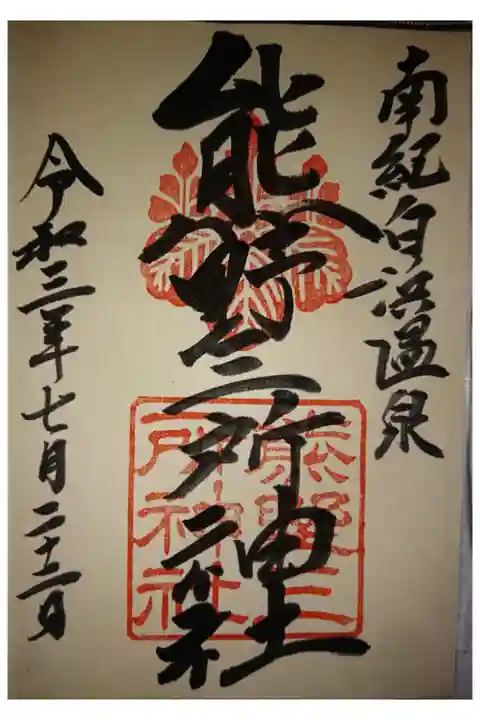 南紀白浜温泉
熊野三所神社
熊野三
所神社
令和三年七月二十二日